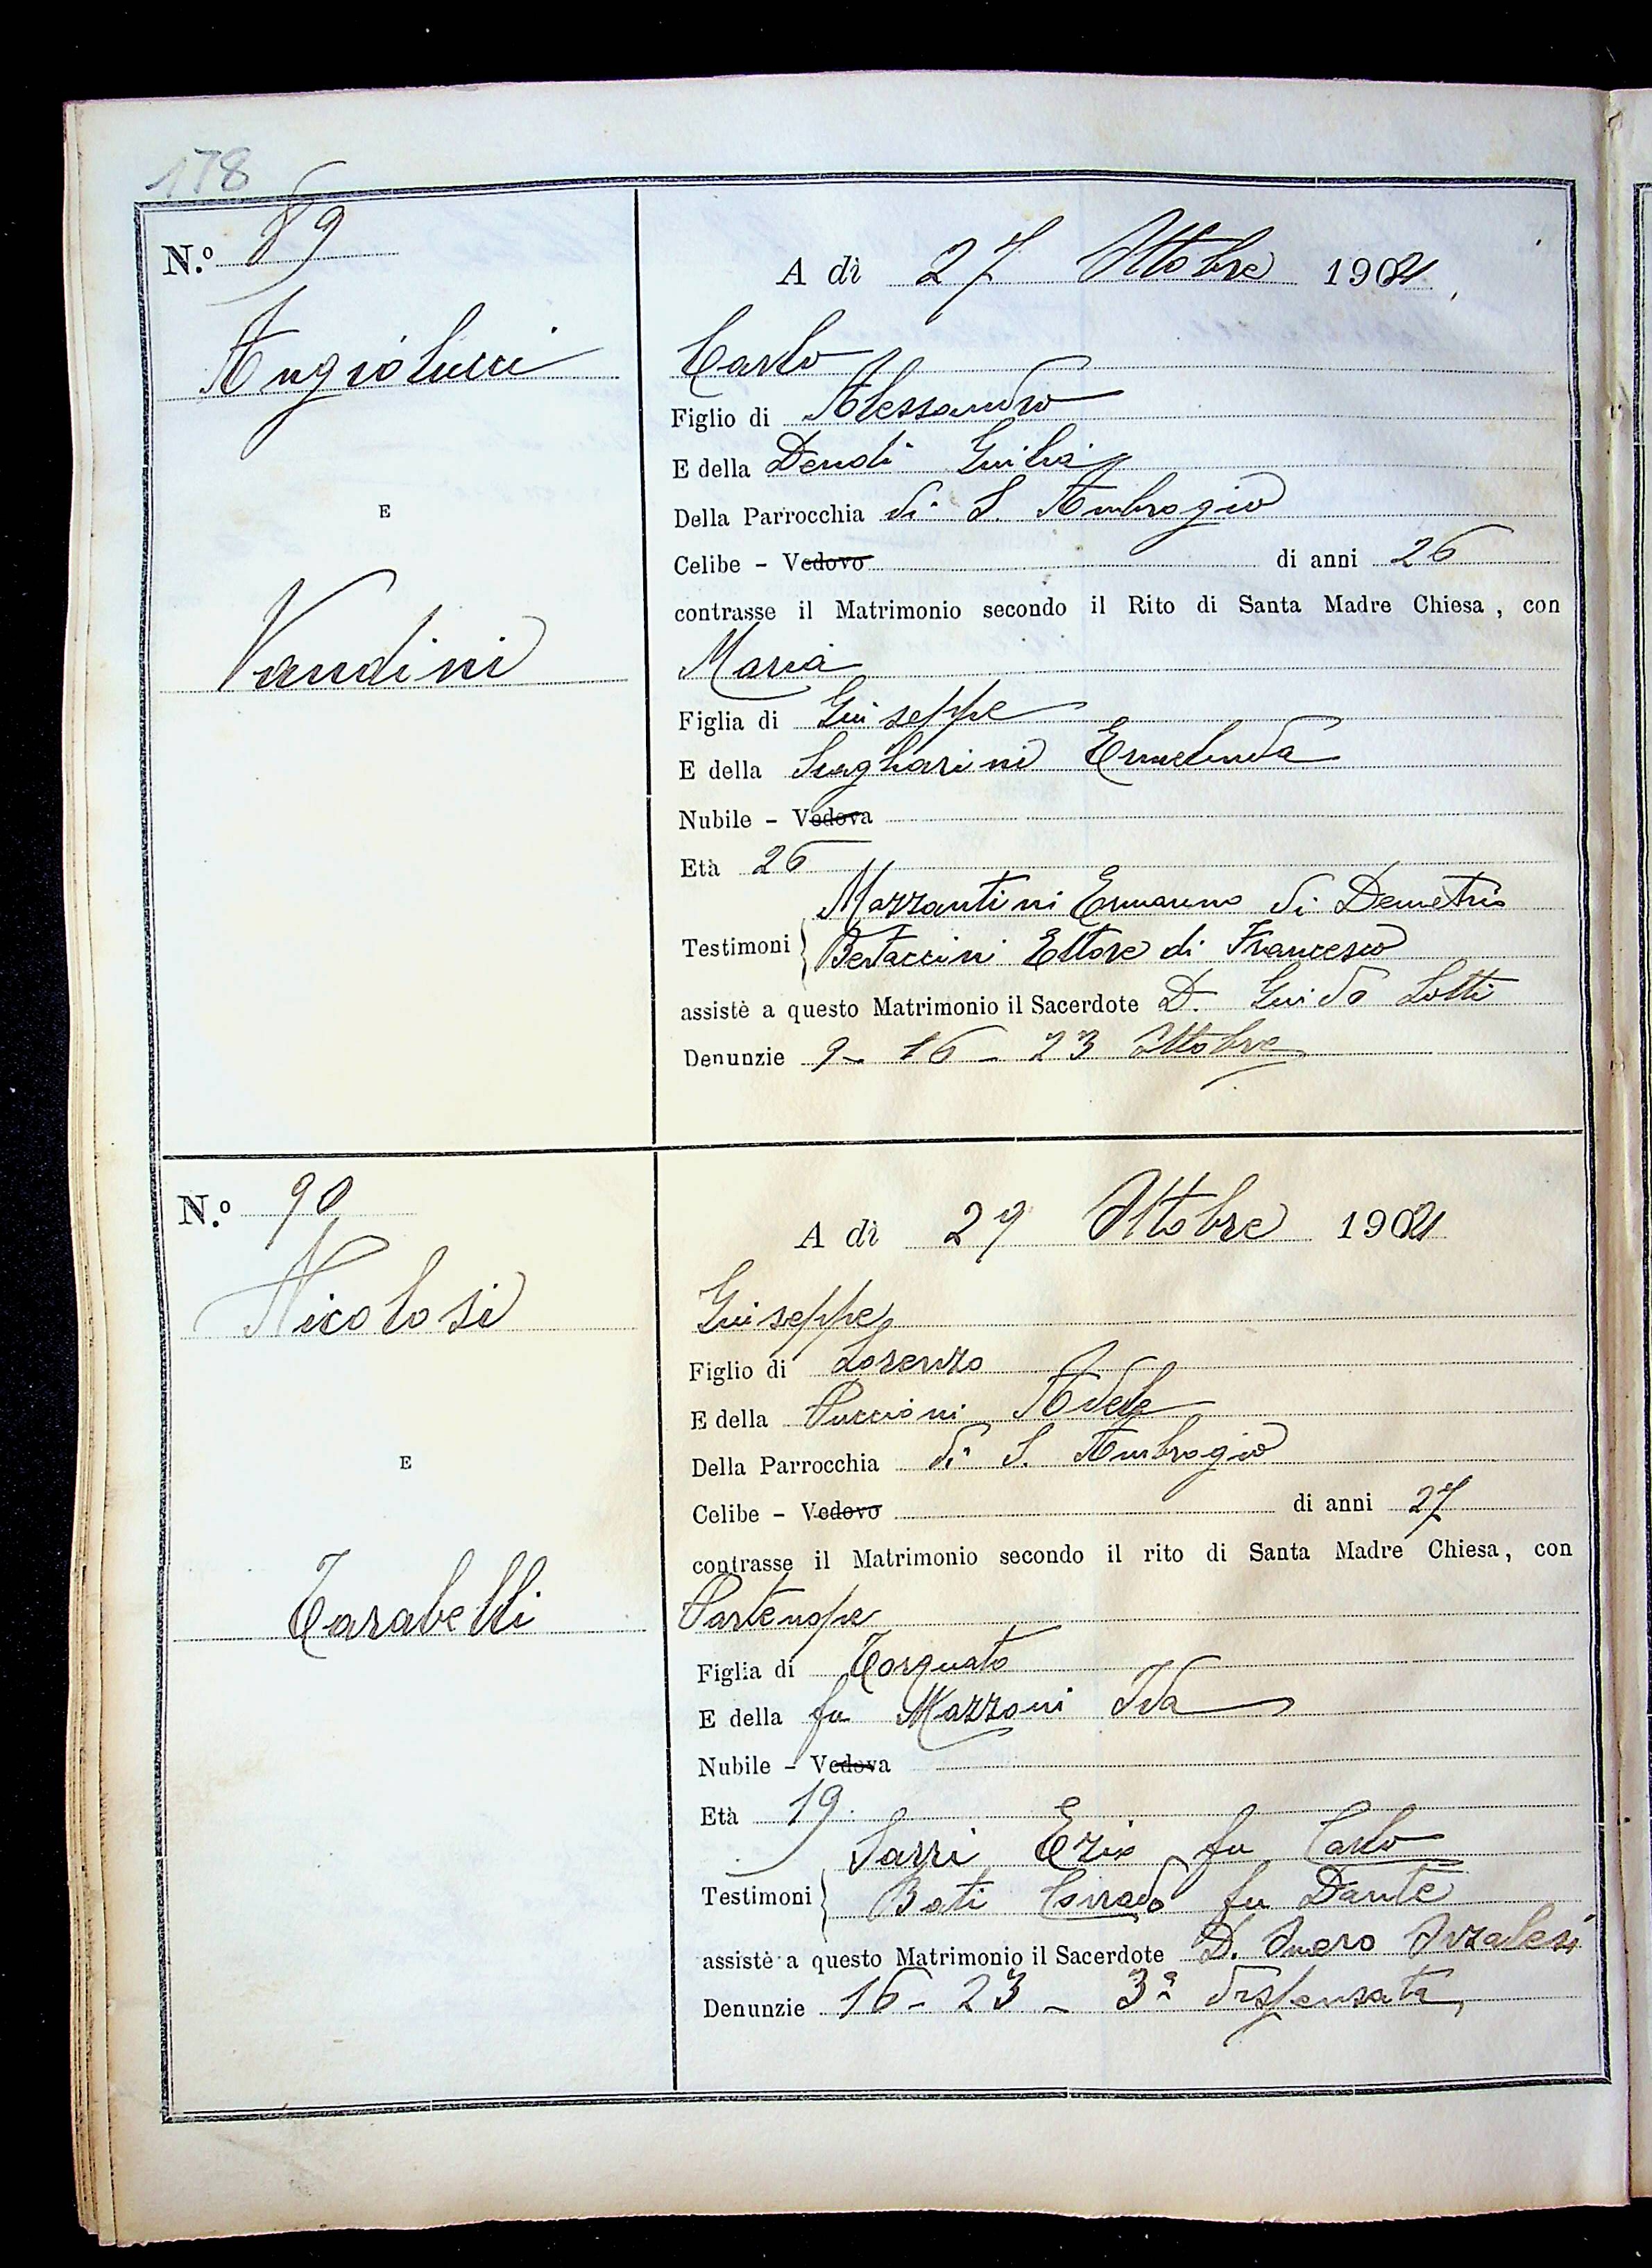 178
N.º 89
A dì 27 Ottobre 1904
Angiolucci
Carlo
Figlio di Alessandro
E della Dendi Giulia
E
Della Parrocchia di S. Ambrogio
Celibe - Vedovo di anni 26
contrasse il Matrimonio secondo il Rito di Santa Madre Chiesa, con
Vandini
Maria
Figlia di Giuseppe
E della Ermelinda
Nubile - Vedova
Età 26
Mazzantini Ermanno di Demetrio
Testimoni Bertaccini Ettore di Francesco
assistè a questo Matrimonio il Sacerdote D. Guido Lotti
Denunzie 9 - 16 - 23 Ottobre
N.º 90
A dì 29 Ottobre 1904
Nicolosi
Giuseppe
Figlio di Lorenzo
E della Puccioni Adele
E
Della Parrocchia di S. Ambrogio
Celibe - Vedovo di anni 27
contrasse il Matrimonio secondo il rito di Santa Madre Chiesa, con
Tarabelli
Partenope
Figlia di Torquato
E della fu Mazzoni Ida
Nubile - Vedova
Età 19
Sarri Ezio fu Carlo
Testimoni Bati Corrado fu Dante
assistè a questo Matrimonio il Sacerdote D.
Denunzie 16 - 23 - 3ª dispensata